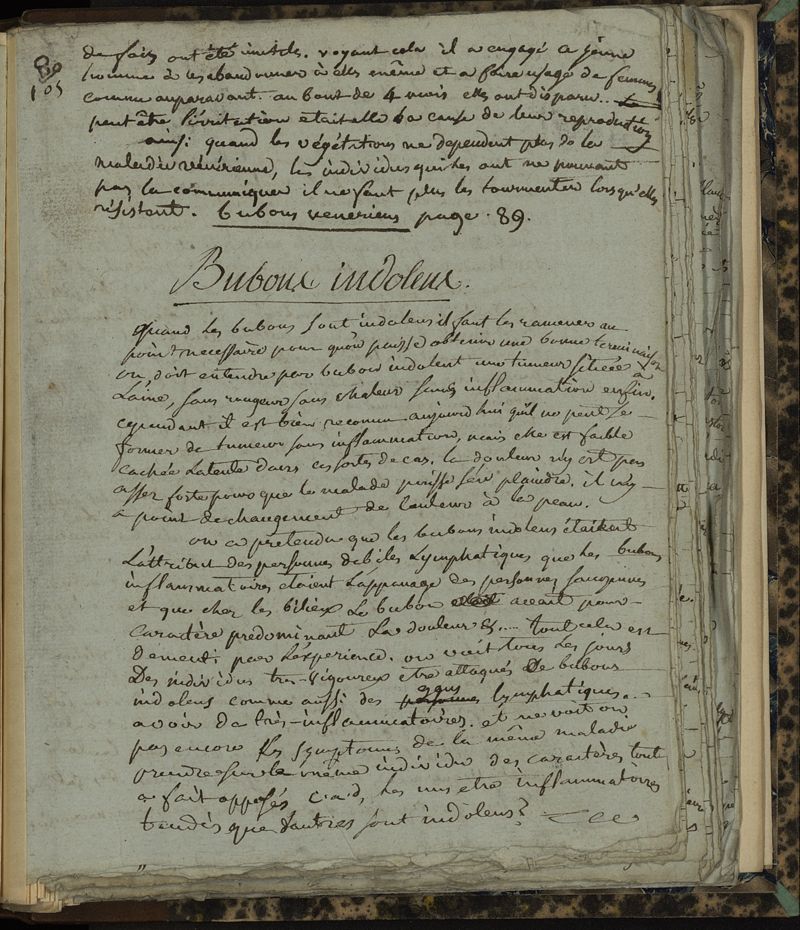 89
105
de fois ont été inutils. voyant cela il a engagé ce jeune
homme à les abandonner à elles même et a faire usage de femmes
comme auparavant. au bout de 4 mois elles ont disparu..
peut être l'irritation etait elle la cause de leur reproduction
ainsi quand les végétations ne dependent plus de la
maladie vénérienne, les individus qui les ont ne pouvant
pas la communiquer il ne faut plus les tourmenter lorsqu'elles
résistent. bubons veneriens page. 89.
Bubons indolens.
Quand les bubons sont indolens il faut les ramener au
point necessaire pour qu'on puisse obtenir une bonne terminaison
on doit entendre par bubon indolent une tumeur située à
L'aine, sans rougeur sans chaleur sans inflammation enfin.
cependant il est bien reconnu aujourd'hui qu'il ne peut se
former de tumeur sans inflammation, mais elle est faible
cachée Latente dans ces sortes de cas. la douleur n'y est pas
assez forte pour que le malade puisse s'en plaindre. il n'y
a point de changement de couleur à la peau.
on a pretendu que les bubons indolens étaient
L'attribut des personnes debiles Lymphatiques que les bubons
inflammatoires etoient L'appanage des personnes sanguines
et que chez les bilieux Le bubon avait pour
caractère predominant La douleur &.... tout cela est
dementi par L'experience. on voit tous Les jours
Des individus tres-vigoureux etre attaqués de bubons
indolens comme aussi des gens lymphatiques
avoir de très-inflammatoires. et ne voit on
pas encore les symptomes de la même maladie
prendre sur le même individu des caractères tout
a fait opposés c.a.d, les uns etre inflammatoires
tandis que d'autres sont indolens?